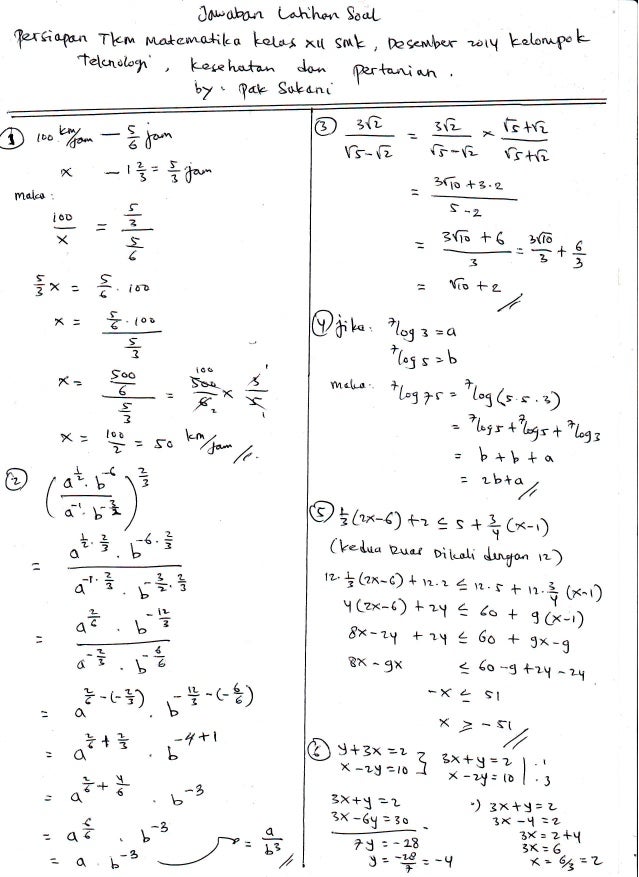 Jawaban Latihan Soal
Persiapan TKM Matematika kelas XII SMK, Desember 2014 kelompok
Teknologi, kesehatan dan pertanian.
by: Pak Sukani
① 100 km/jam – 5/6 jam
x – 1 2/3 = 5/3 jam
maka:
100/x = (5/3)/(5/6)
5/3 x = 5/6 · 100
x = (5/6 · 100)/(5/3)
x = (500/6)/(5/3) = 500/6 × 3/5
x = 100/2 = 50 km/jam //.
② ((a^(1/2) · b^(-6))/(a^(-1) · b^(-3/2)))^(2/3)
= (a^(1/2 · 2/3) · b^(-6 · 2/3))/(a^(-1 · 2/3) · b^(-3/2 · 2/3))
= (a^(2/6) · b^(-12/3))/(a^(-2/3) · b^(-6/6))
= a^(2/6 - (-2/3)) · b^(-12/3 - (-6/6))
= a^(2/6 + 2/3) · b^(-4+1)
= a^(2/6 + 4/6) · b^(-3)
= a^(6/6) · b^(-3)
= a · b^(-3) = a/b³ //
③ 3√2/(√5-√2) = 3√2/(√5-√2) × (√5+√2)/(√5+√2)
= (3√10 + 3·2)/(5-2)
= (3√10 + 6)/3 = 3√10/3 + 6/3
= √10 + 2 //
④ jika: ⁷log 3 = a
⁷log 5 = b
maka: ⁷log 75 = ⁷log (5·5·3)
= ⁷log 5 + ⁷log 5 + ⁷log 3
= b + b + a
= 2b + a //
⑤ 1/3 (2x-6) + 2 ≤ 5 + 3/4 (x-1)
(kedua ruas dikali dengan 12)
12 · 1/3 (2x-6) + 12·2 ≤ 12·5 + 12 · 3/4 (x-1)
4(2x-6) + 24 ≤ 60 + 9(x-1)
8x-24 + 24 ≤ 60 + 9x-9
8x - 9x ≤ 60-9+24-24
-x ≤ 51
x ≥ -51 //
⑥ y+3x = 2 } 3x+y = 2 | ·1
x-2y = 10 } x-2y = 10 | ·3
3x+y = 2
3x-6y = 30 -
7y = -28
y = -28/7 = -4
·) 3x+y = 2
3x-4 = 2
3x = 2+4
3x = 6
x = 6/3 = 2